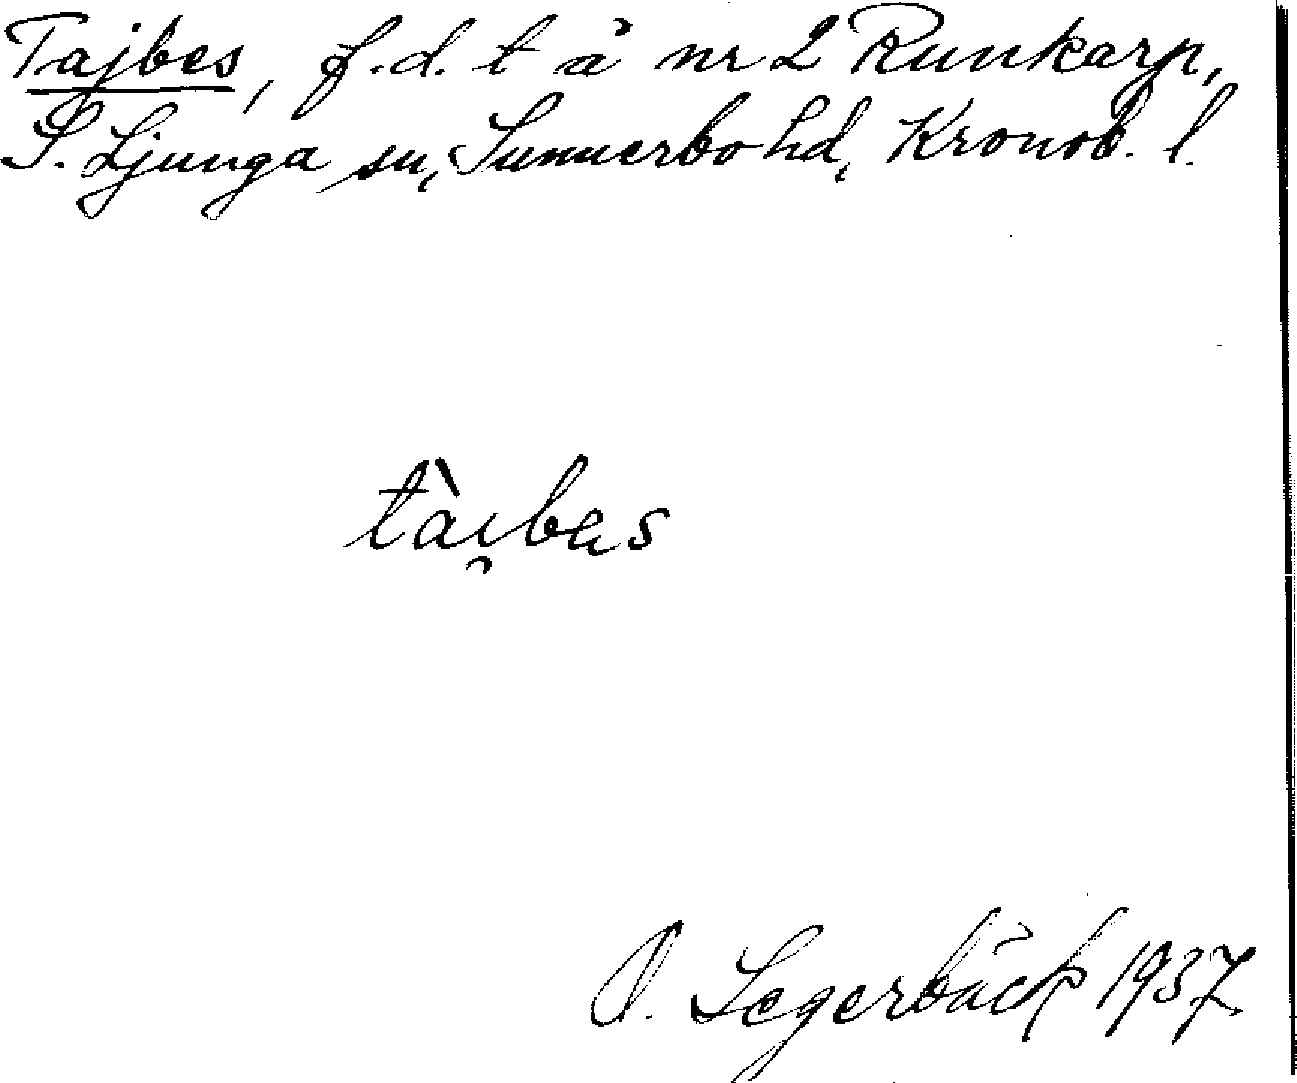 Tajbes, f.d. t å nr 2 Runkarp,
S. Ljunga sn, Sunnerbo hd, Kronob. l.
tài̯bes
Segerbäck 1937